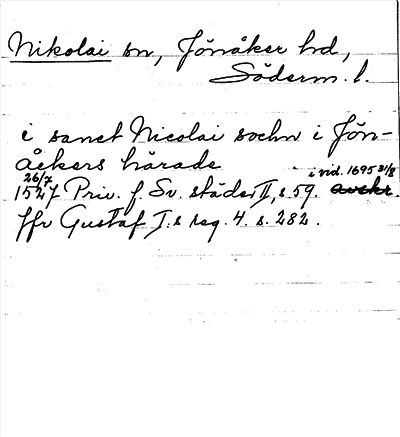 Nikolai sn, Jönåker hd,
Söderm. l.
i sanct Nicolai sochn i Jön-
åckers härade
26/7 i vid. 1695 31/8
1527 Priv. f. Sv. städer II, s 59. avskr.
Jfr Gustaf I:s reg. 4. s. 282.